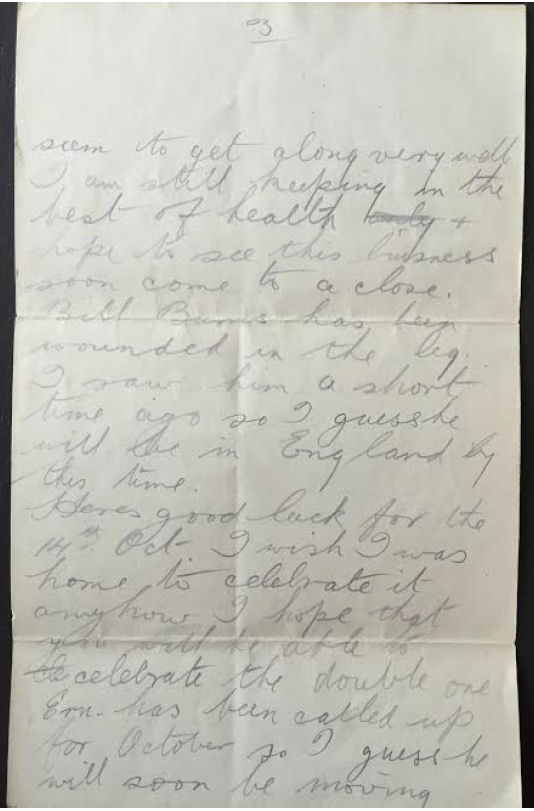 3
seem to get along very well
I am still keeping in the
best of health only +
hope to see this buisness
soon come to a close.
Bill Burns has been
wounded in the leg.
I saw him a short
time ago so I guess he
will be in England by
this time.
Heres good luck for the
14th Oct I wish I was
home to celebrate it
anyhow I hope that
you will be able to
celebrate the double one
Ern. has been called up
for October so I guess he
will soon be moving